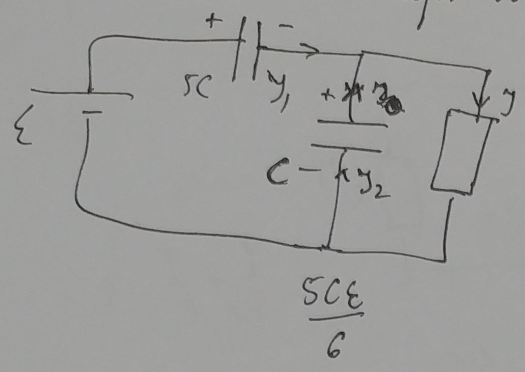 + -
5C y₁
ε -
+ -
C - y₂
y
5Cε
6